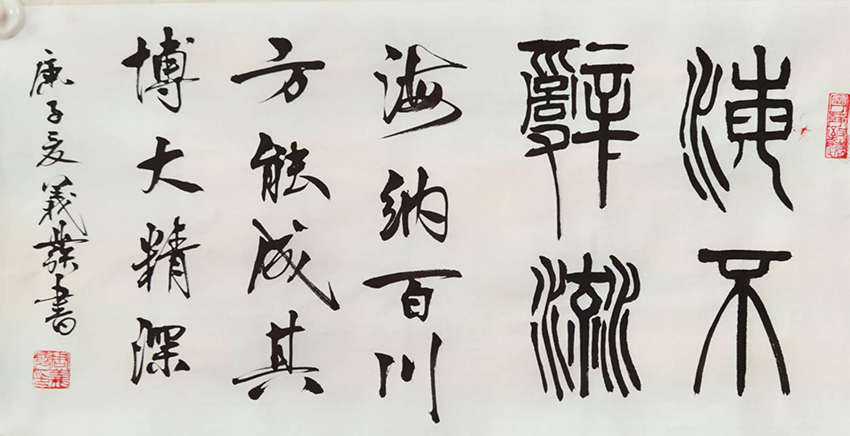 海不
辭流
海纳百川
方能成其
博大精深
庚子夏義燊書